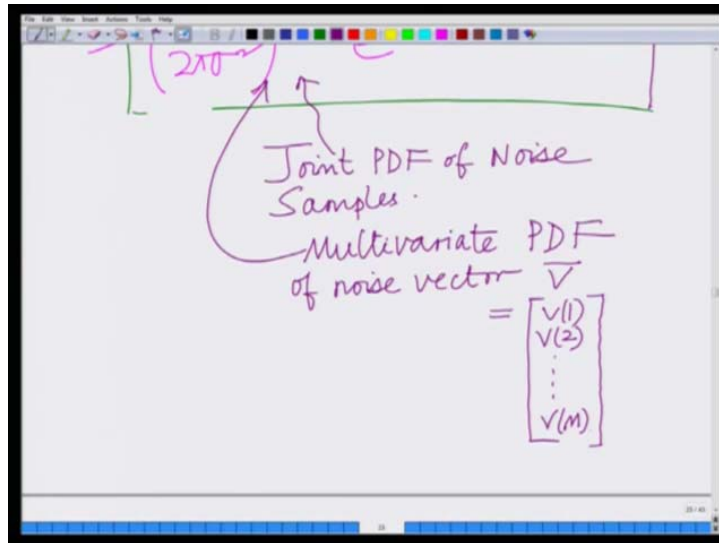 File Edit View Insert Actions Tools Help
2πσ² e
Joint PDF of Noise
Samples.
Multivariate PDF
of noise vector V̅
= [ V(1)
V(2)
⋮
V(M) ]
25 / 43